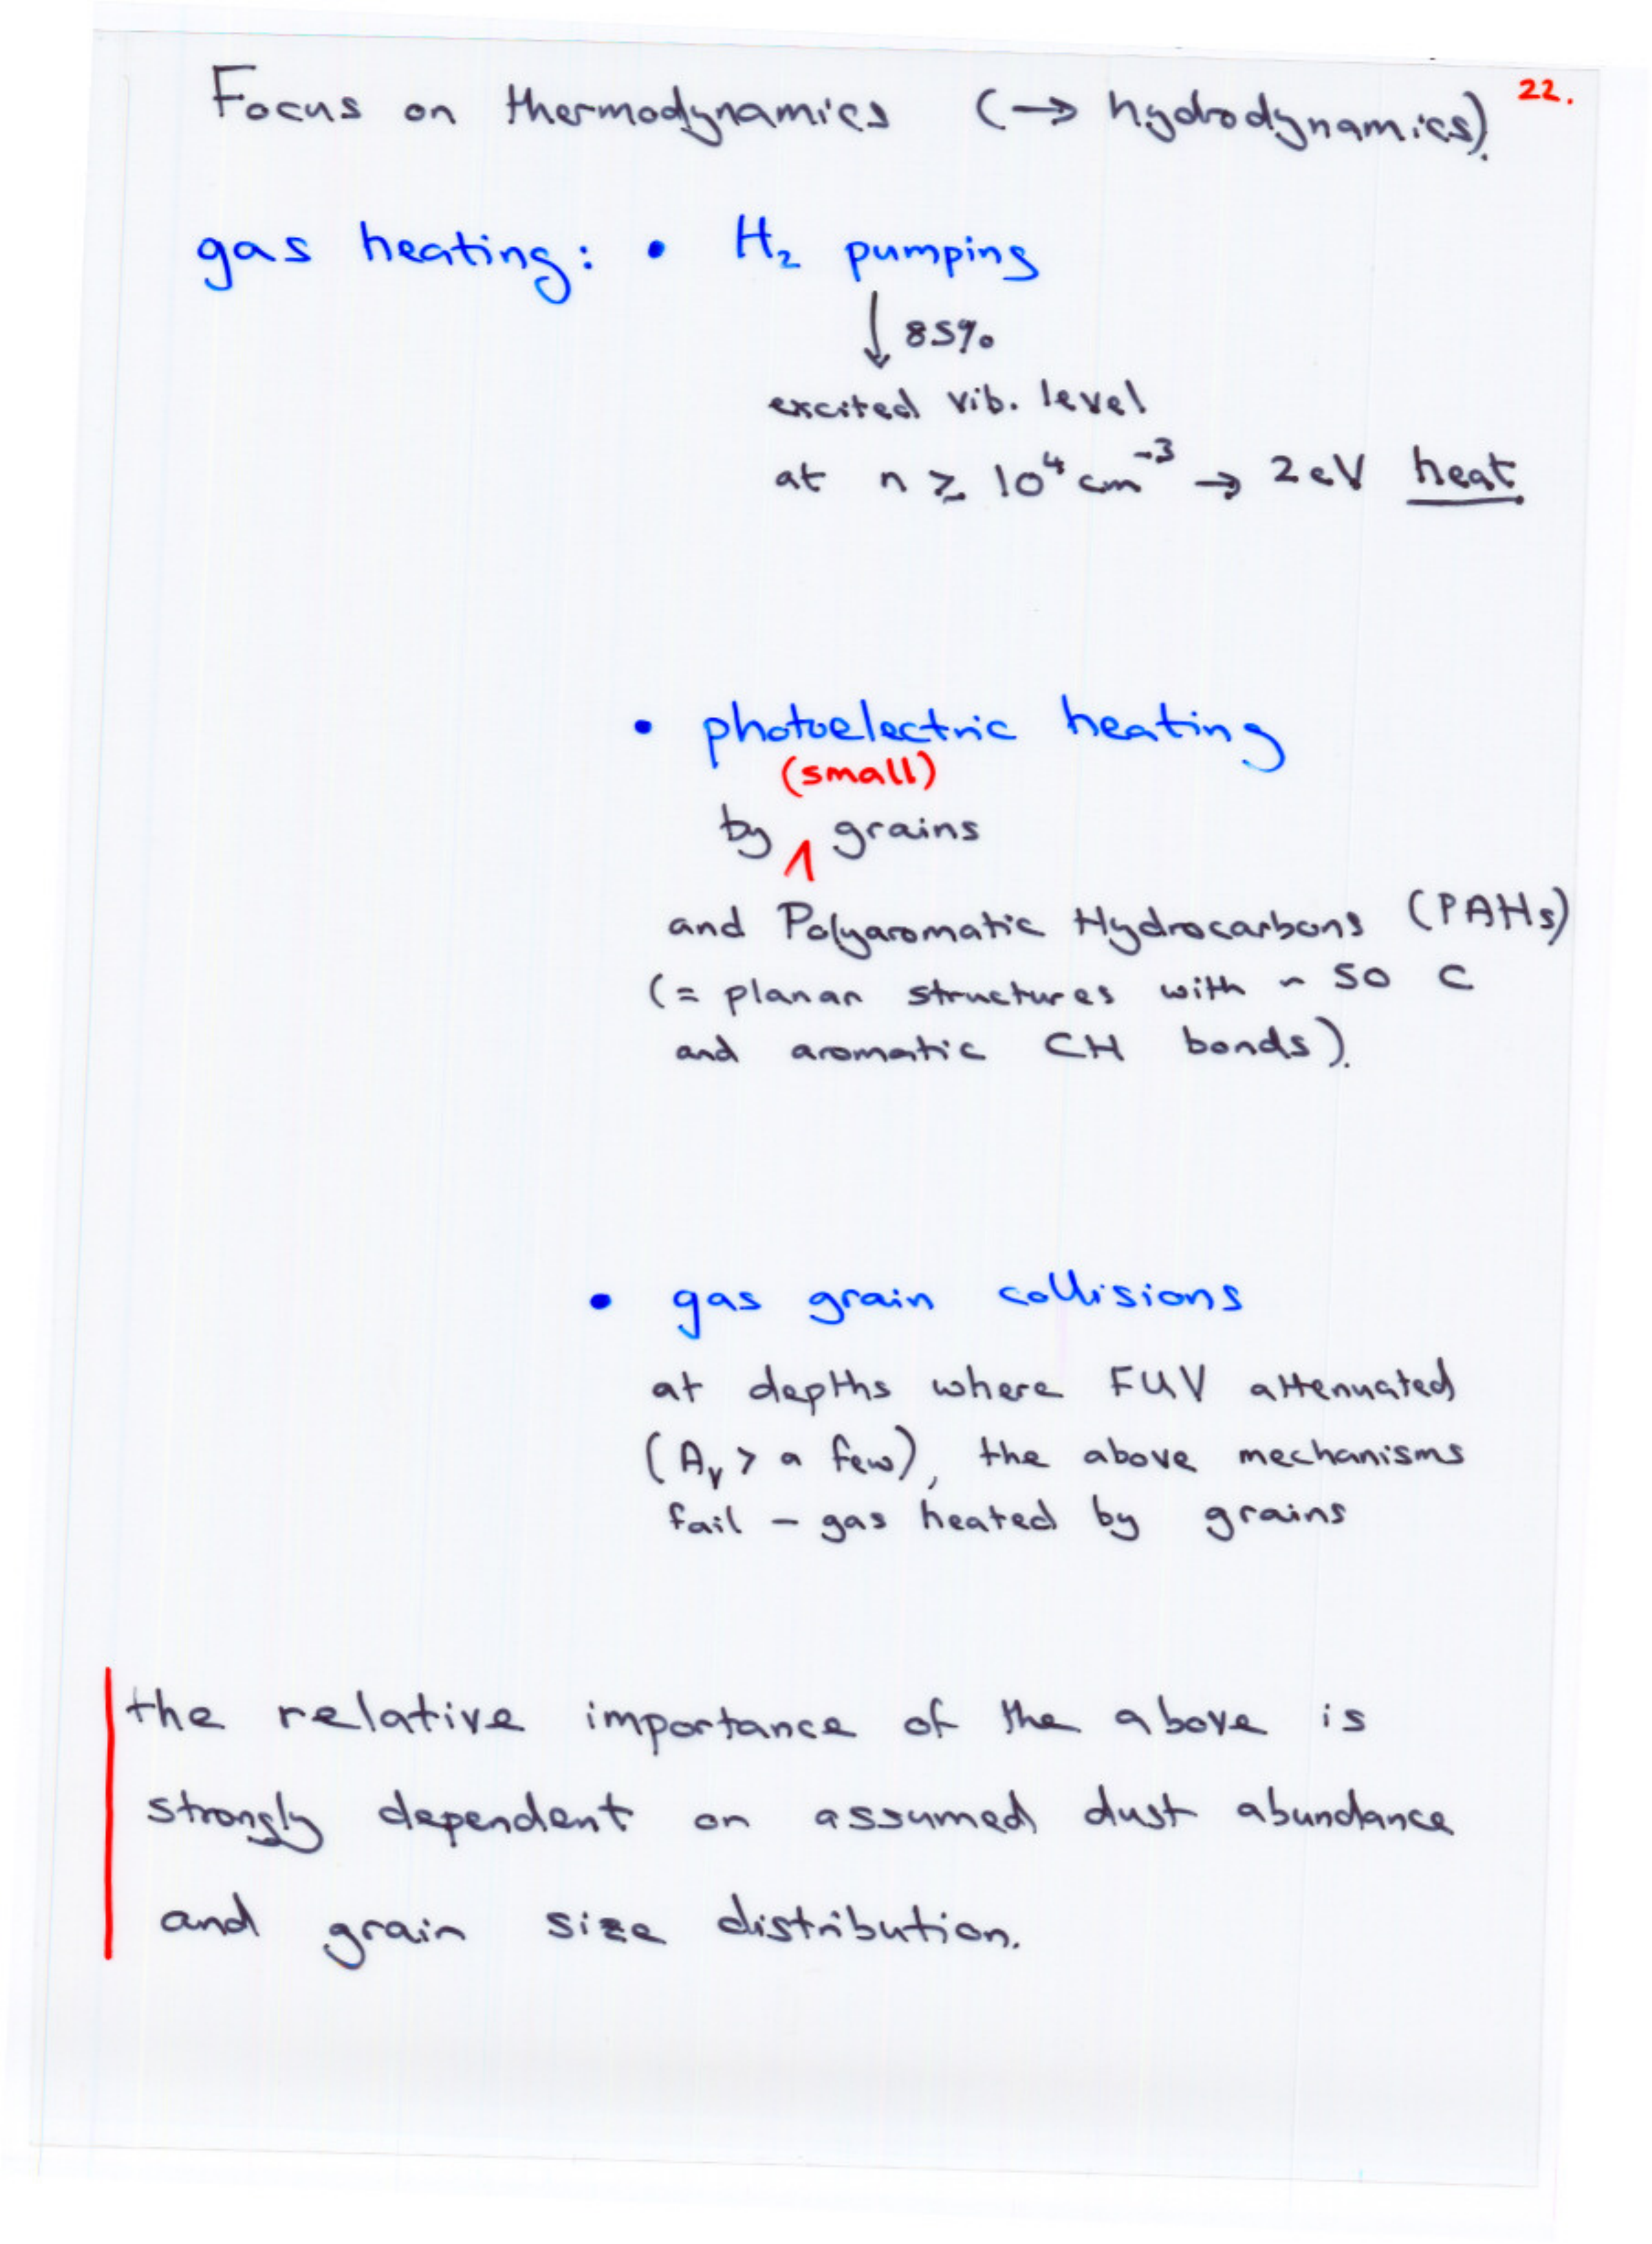 Focus on thermodynamics (→ hydrodynamics). 22.
gas heating: • H₂ pumping
↓ 85%
excited vib. level
at n ≥ 10⁴ cm⁻³ → 2 eV heat
• photoelectric heating
(small)
by ∧ grains
and Polyaromatic Hydrocarbons (PAHs)
(= planar structures with ~ 50 C
and aromatic CH bonds).
• gas grain collisions
at depths where FUV attenuated
(Aᵥ > a few), the above mechanisms
fail – gas heated by grains
the relative importance of the above is
strongly dependent on assumed dust abundance
and grain size distribution.